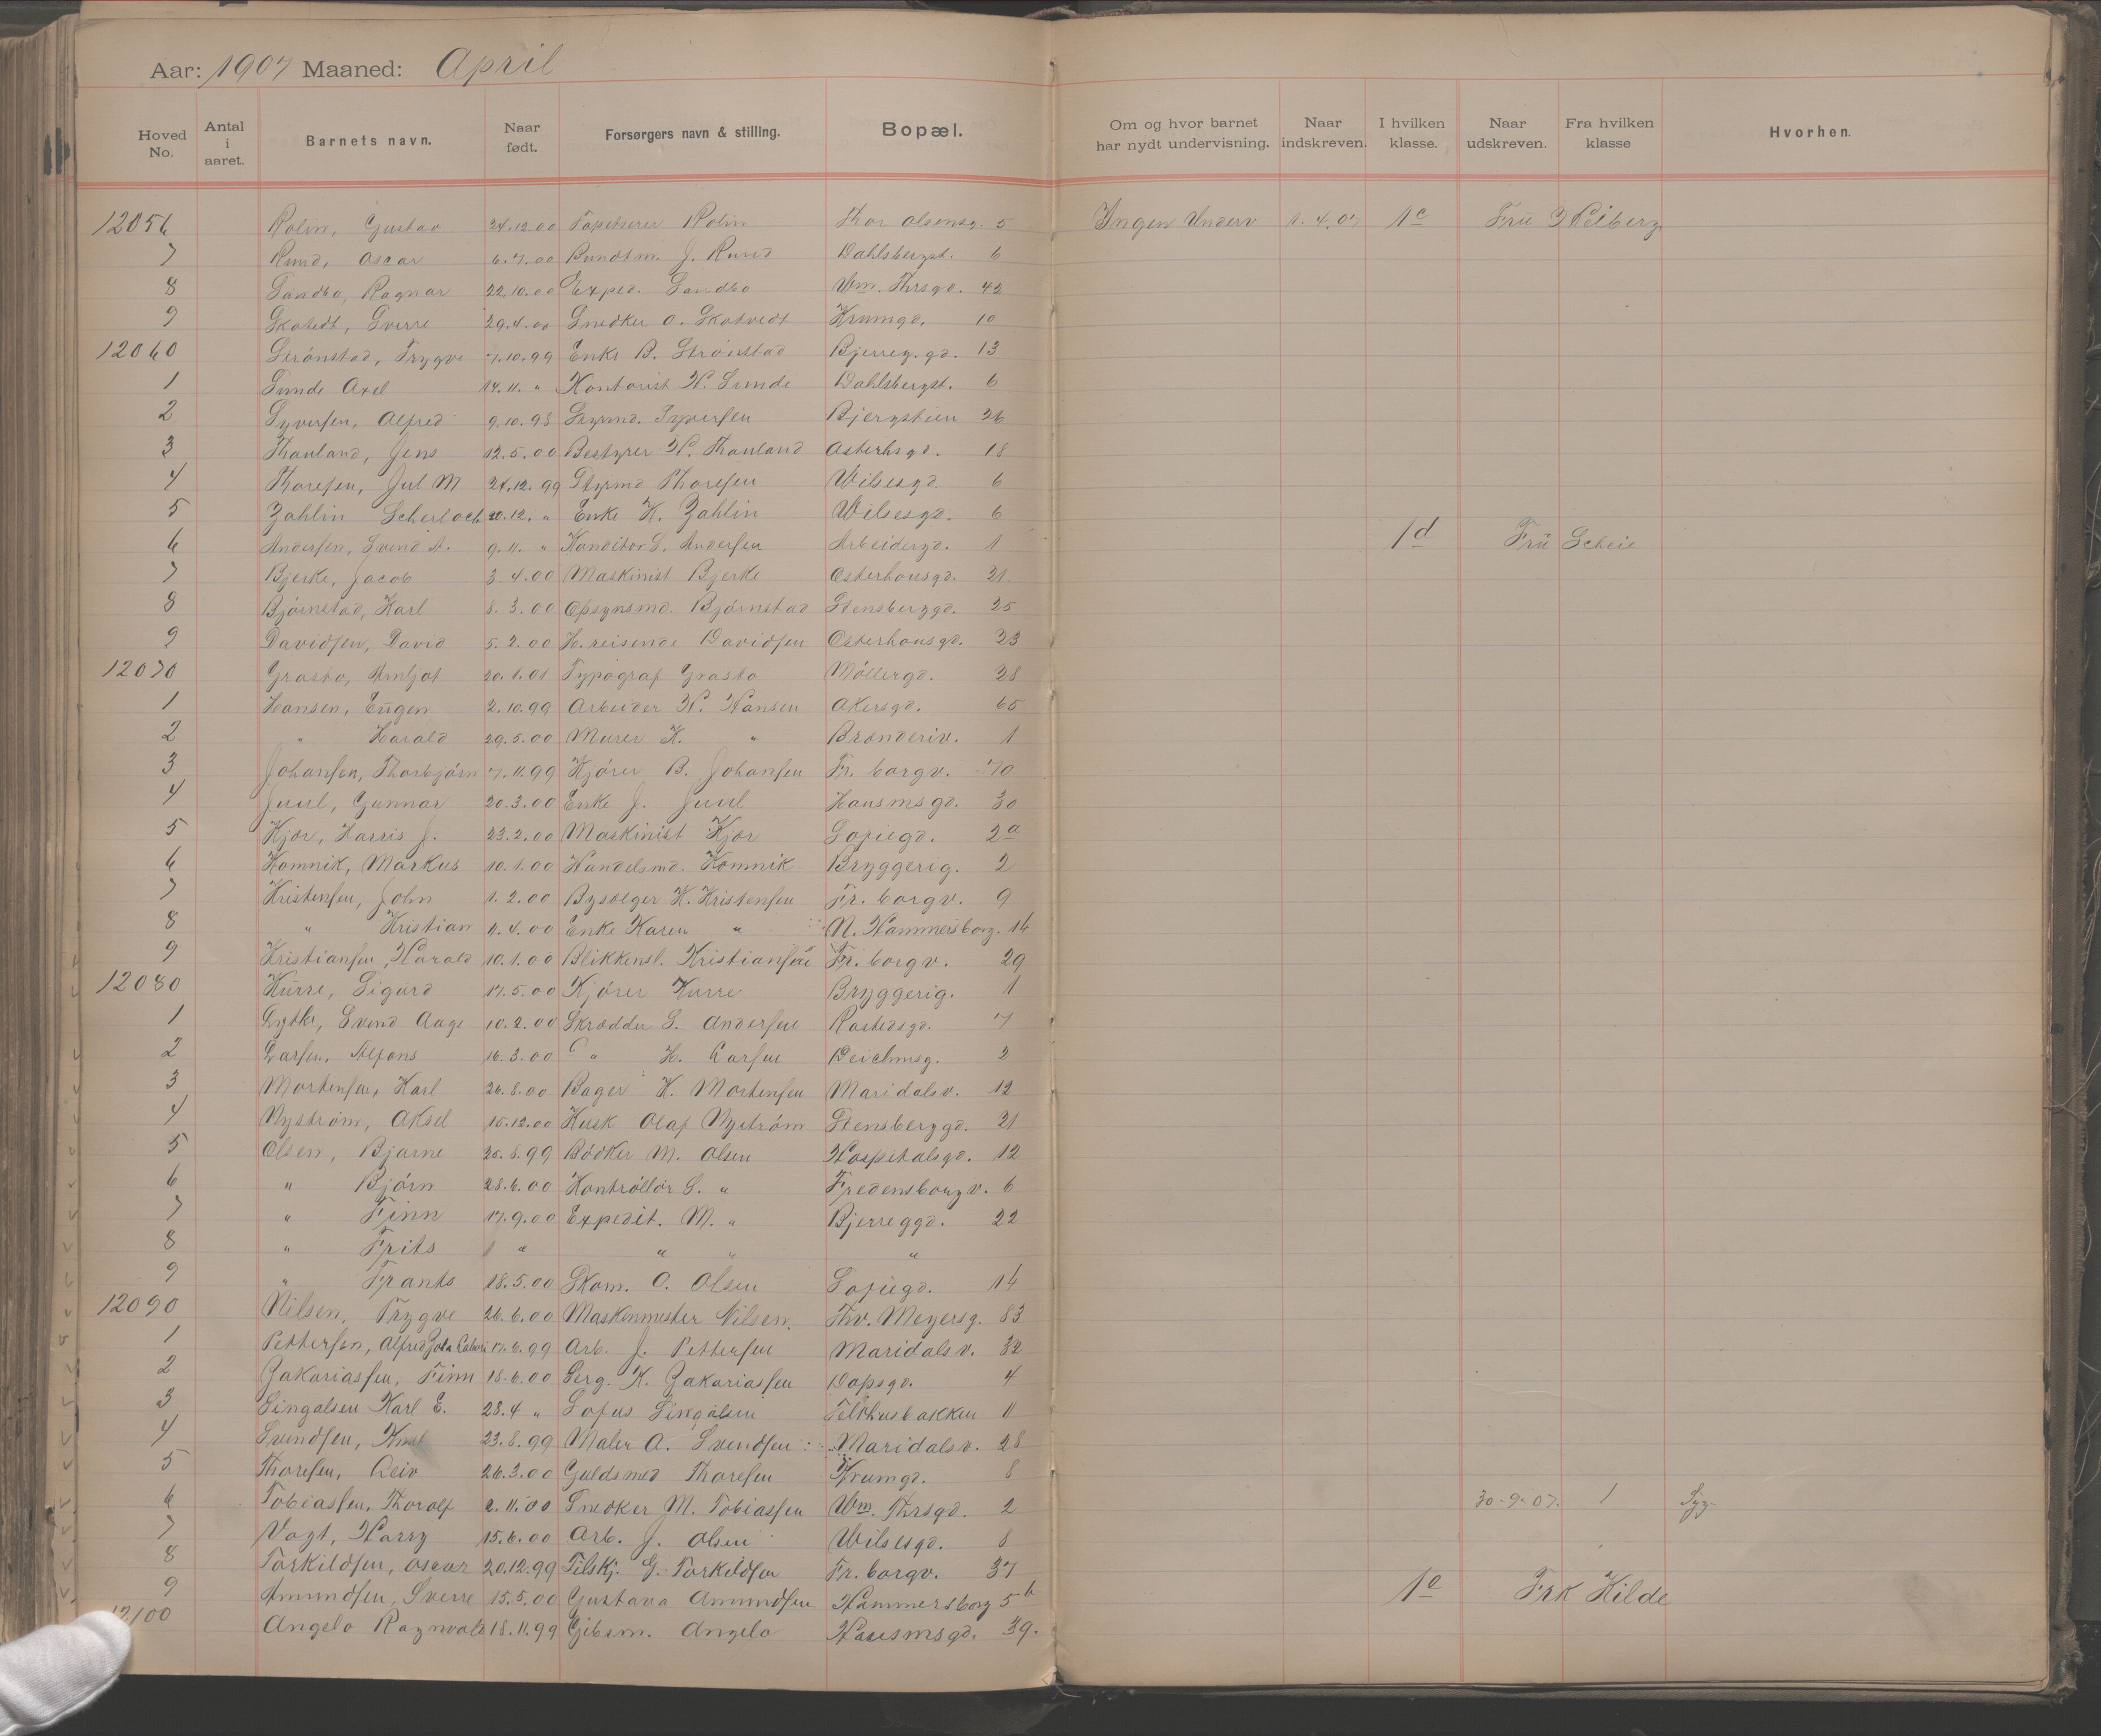 Aar: 1907 Maaned: April
Hoved No. Antal i aaret. Barnets navn. Naar født. Forsørgers navn & stilling. Bopæl. Om og hvor barnet har nydt undervisning. Naar indskreven. I hvilken klasse. Naar udskreven. Fra hvilken klasse Hvorhen.
12056 Rolin, Gustav 24.12.00 Tapetserer Rolin Thor Olsensg. 5 Ingen Underv 1.4.07 1c Frü
7 Rund, Oscar 6.7.00 Bundtm. J. Rund Dahlsbergst. 6
8 Sandbo, Ragnar 22.10.00 Exped. Sandbo Wm. Thrsgd. 42
9 Skotvedt, Sverre 29.4.00 Snedker O. Skotvedt Krumgd. 10
12060 Strønstad, Trygve 7.10.99 Enke B. Strønstad Bjerreg.gd. 13
1 Sunde Axel 14.11. " Kontorist N. Sunde Dahlsbergst. 6
2 Syversen, Alfred 9.10.98 Styrmd. Syversen Bjergstien 26
3 Thauland, Jens 12.5.00 Bestyrer N. Thauland Osterhsgd. 18
4 Thoresen, Jul M 24.12.99 Styrmd Thoresen Wilsesgd 6
5 Zahlin 20.12. " Enke H. Zahlin Wilsesgd. 6
6 Andersen, Svend A. 9.11. " Konditor S. Andersen Arbeidergd. 1 1d Frü Scheie
7 Bjerke, Jacob 3.4.00 Maskinist Bjerke Osterhousgd. 21
8 Bjørnstad, Karl 8.3.00 Opsynsmd. Bjørnstad Stensberggd. 25
9 Davidsen, David 5.2.00 H.reisende Davidsen Osterhousgd. 23
12070 Grasto, Arnljot 20.1.01 Typograf Grasto Møllergd. 28
1 Hansen, Eugen 2.10.99 Arbeider N. Hansen Akersgd. 65
2 " Harald 29.5.00 Murer K. " Brænderiv. 1
3 Johansen, Thorbjørn 7.11.99 Kjører B. Johansen Fr. borgv. 70
4 Juul, Gunnar 20.3.00 Enke J. Juul Hausmsgd. 30
5 Kjær, Harris J. 23.2.00 Maskinist Kjær Sofiegd. 2a
6 Komnik, Markus 10.1.00 Handelsmd. Komnik Bryggerig. 2
7 Kristensen, John 1.2.00 H. Kristensen Fr. borgv. 9
8 " Kristian 11.4.00 Enke Karen " N. Hammersborg. 14
9 Kristiansen, Harald 10.1.00 Blikkensl. Kristiansen Fr. borgv. 29
12080 Kurre, Sigurd 17.5.00 Kjører Kurre Bryggerig. 1
1 Lytke, Svend Aage 10.2.00 Skrædder S. Andersen Rostedsgd. 7
2 Larsen, Alfons 16.3.00 " H. Larsen Deichmsg. 2
3 Mortensen, Karl 26.8.00 Bager K. Mortensen Maridalsv. 12
4 Nystrøm, Aksel 15.12.00 Kusk Olaf Nystrøm Stensberggd. 21
5 Olsen, Bjarne 25.8.99 Bødker M. Olsen Hospitalsgd. 12
6 " Bjørn 28.6.00 Kontrollør S. " Fredensborgv. 6
7 " Finn 17.9.00 Expedit. M. " Bjerreggd. 22
8 " Frits " " " "
9 " Frants 18.5.00 Skom. O. Olsen Sofiegd. 14
12090 Nilsen, Trygve 26.6.00 Maskinmester Nilsen. Thv. Meyersg. 83
1 Pettersen, Alfred 17.6.99 Arb. J. Pettersen Maridalsv. 32
2 Zakariassen, Finn 18.6.00 Serg. K. Zakariassen Dopsgd. 4
3 Singalsen Karl E. 28.4 " Sofus Singalsen Telthusbakken 11
4 Svendsen, 23.8.99 Maler A. Svendsen Maridalsv. 28
5 Thoresen, Leiv 26.3.00 Guldsmed Thoresen Krumgd. 8
6 Tobiassen, Thoralf 2.11.00 Snedker M. Tobiassen Wm. Thrsgd. 2 30-9-07. 1 Syg.
7 Vogt, Harry 15.6.00 Arb. J. Olsen Wilsesgd. 8
8 Torkildsen, Oscar 20.12.99 Filskj. G. Torkildsen Fr. borgv. 37
9 Amundsen, Sverre 15.5.00 Gustava Amundsen Hammersborg 5b 1e Frk Hilde
12100 Angelo Ragnvald 18.11.99 Gibsm. Angelo Hausmsgd. 39.